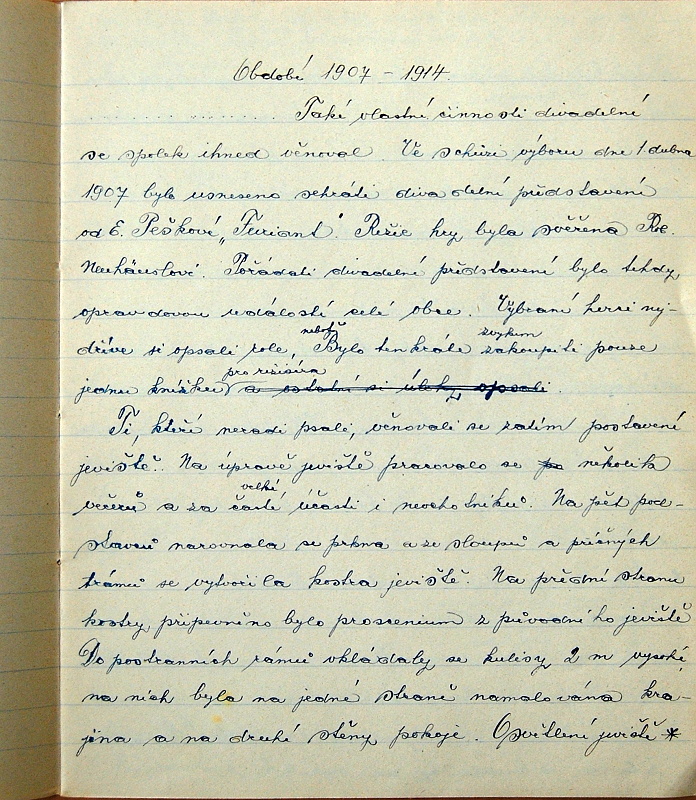 Období 1907 - 1914.
Také vlastní činnosti divadelní
se spolek ihned věnoval. Ve schůzi výboru dne 1. dubna
1907 bylo usneseno sehráti divadelní představení
od E. Peškové „Furiant". Režie hry byla svěřena Rof.
Neuhäuslovi. Pořádati divadelní představení bylo tehdy
opravdovou událostí celé obce. Vybraní herci nej-
neboť zvykem
dříve si opsali role, Bylo tenkráte zakoupiti pouze
pro režiséra
jednu knížku a ostatní si úlohy opsali.
Ti, kteří neradi psali, věnovali se zatím postavení
jeviště. Na úpravě jeviště pracovalo se po několik
velké
večerů a za časté účasti i neochotníků. Na pět pod-
stavců narovnala se prkna a ze sloupů a příčných
trámů se vytvořila kostra jeviště. Na přední stranu
kostry připevněno bylo proscenium z původního jeviště
Do postranních rámů vkládaly se kulisy 2 m vysoké,
na nich byla na jedné straně namalována kra-
jina a na druhé stěny pokoje. Osvětlení jeviště *